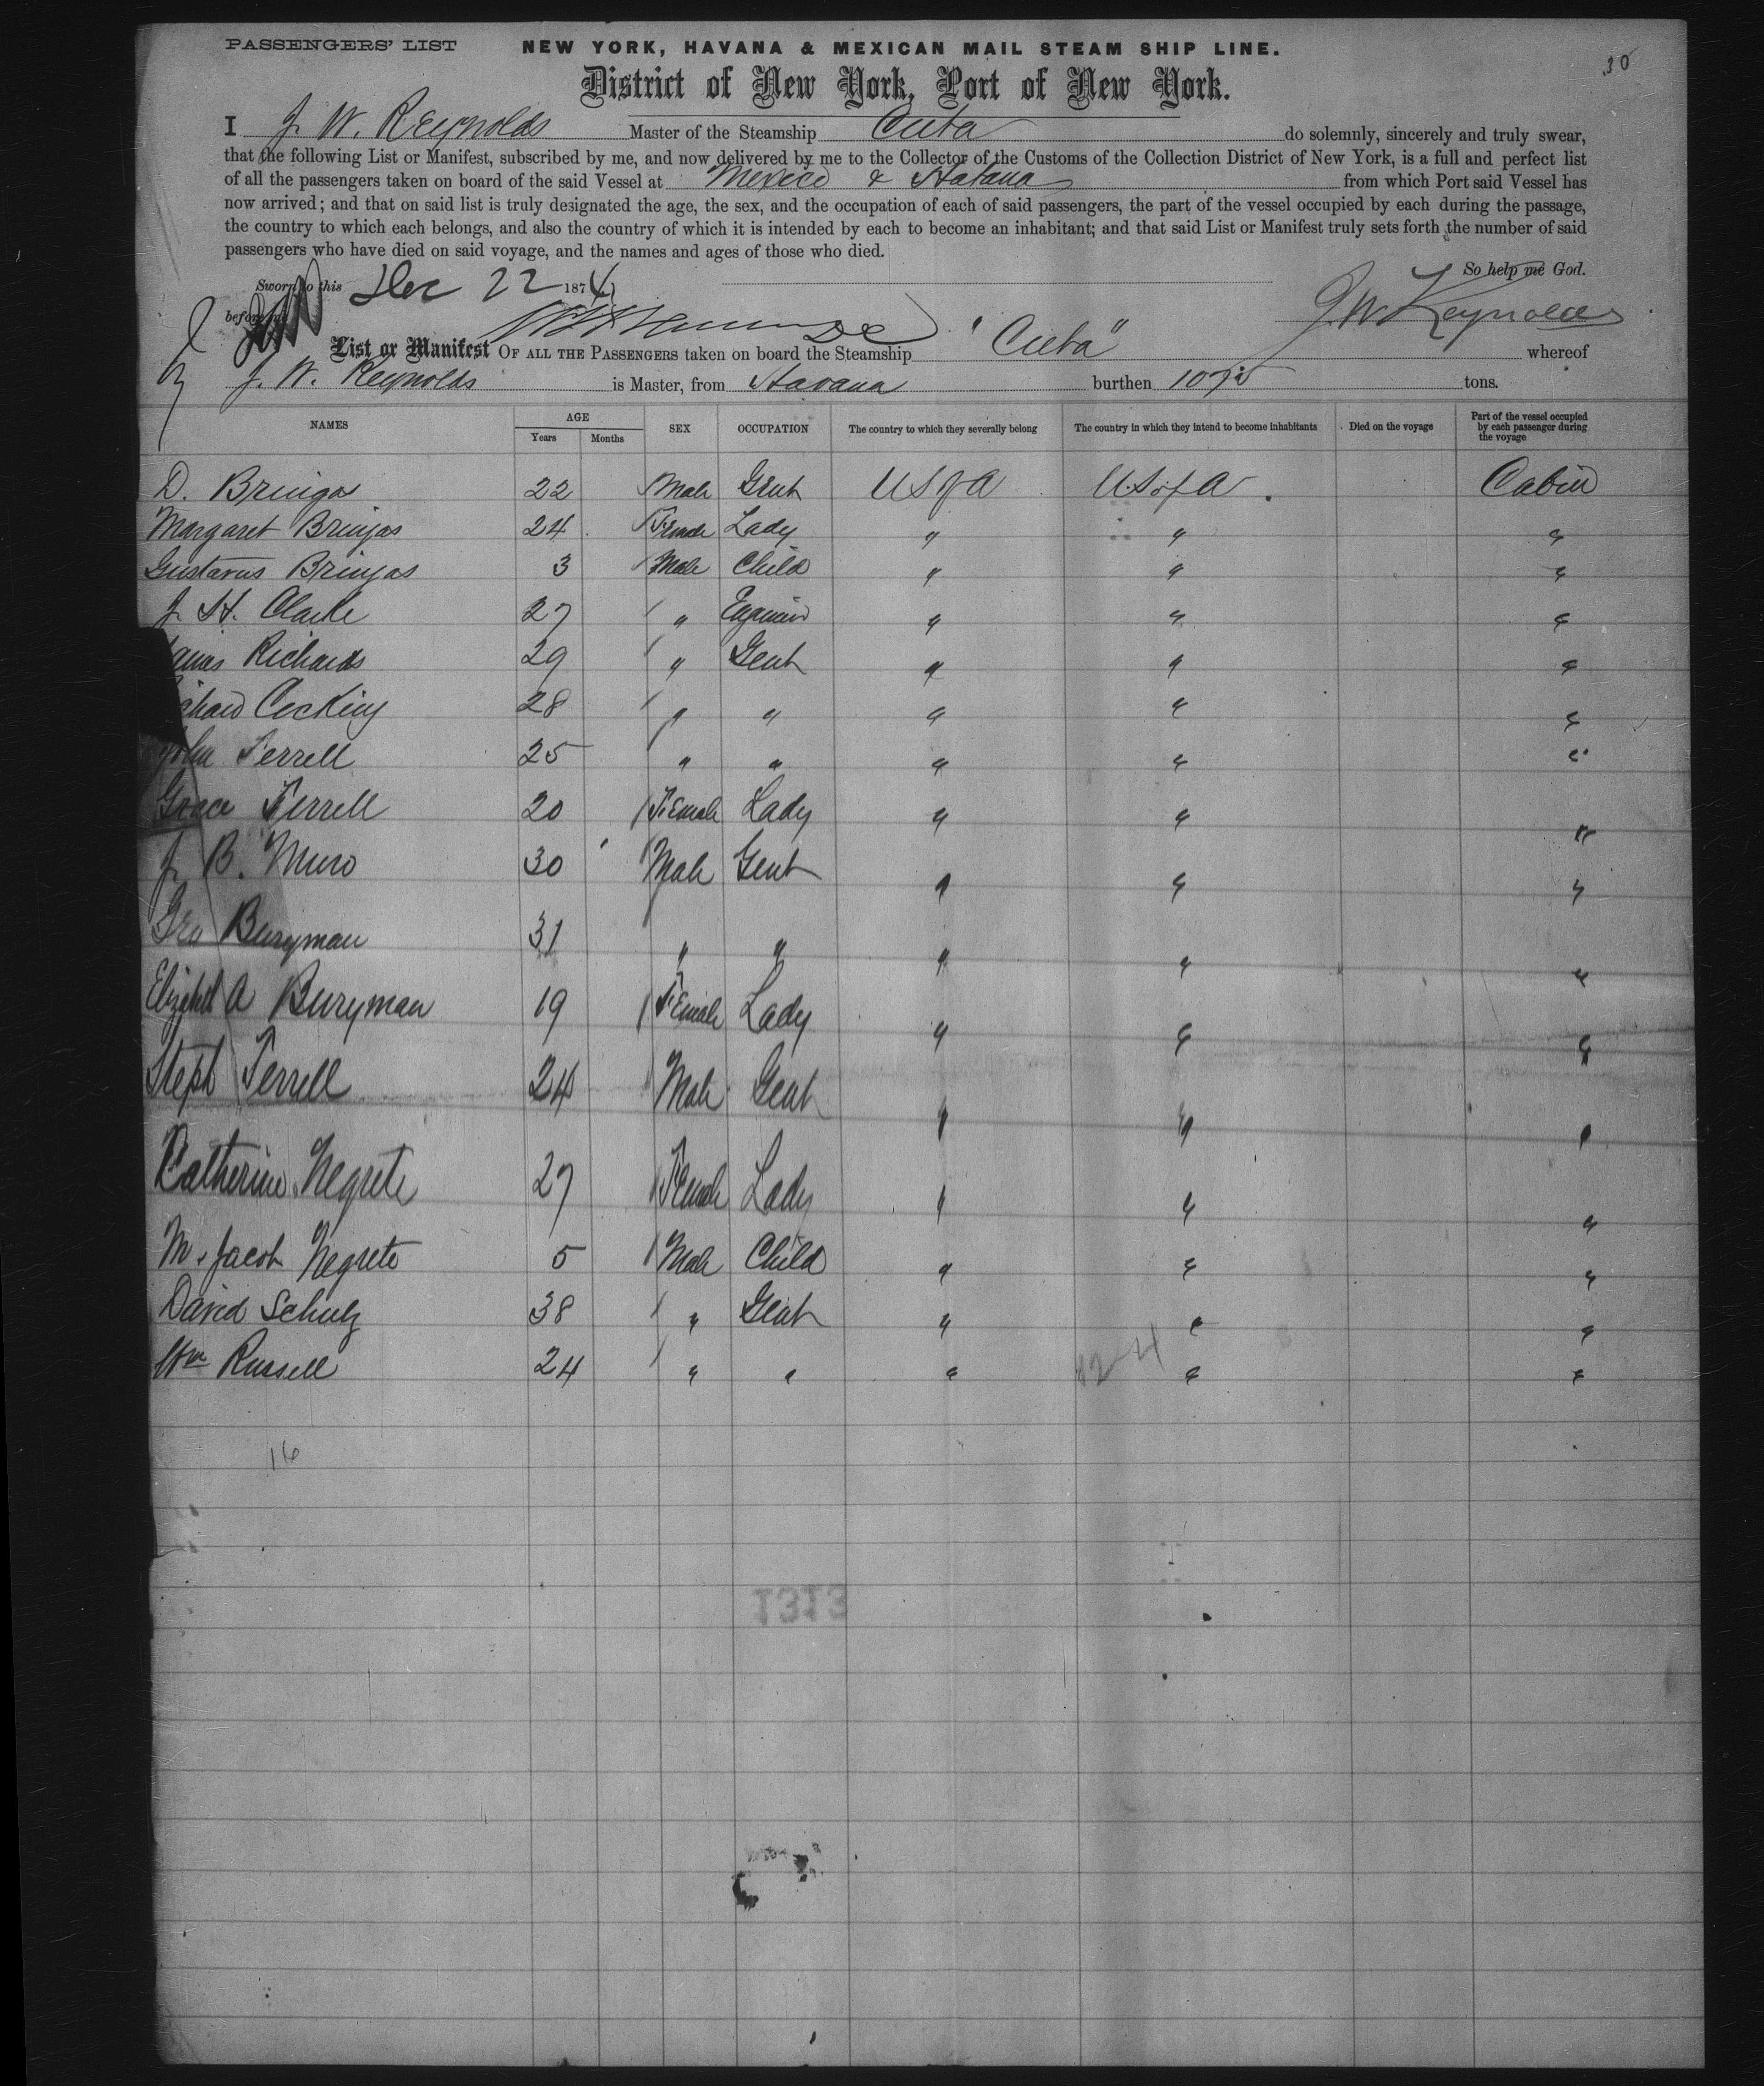 PASSENGERS' LIST NEW YORK, HAVANA & MEXICAN MAIL STEAM SHIP LINE. 30
District of New York, Port of New York.
I J. W. Reynolds Master of the Steamship Cuba do solemnly, sincerely and truly swear,
that the following List or Manifest, subscribed by me, and now delivered by me to the Collector of the Customs of the Collection District of New York, is a full and perfect list
of all the passengers taken on board of the said Vessel at Mexico & Havana from which Port said Vessel has
now arrived; and that on said list is truly designated the age, the sex, and the occupation of each of said passengers, the part of the vessel occupied by each during the passage,
the country to which each belongs, and also the country of which it is intended by each to become an inhabitant; and that said List or Manifest truly sets forth the number of said
passengers who have died on said voyage, and the names and ages of those who died.
So help me God.
Sworn to this Dec 22 1874
before me J W Reynolds
List or Manifest OF ALL THE PASSENGERS taken on board the Steamship "Cuba" whereof
J. W. Reynolds is Master, from Havana burthen tons.
NAMES AGE Years Months SEX OCCUPATION The country to which they severally belong The country in which they intend to become inhabitants Died on the voyage Part of the vessel occupied by each passenger during the voyage
D. Bringas 22 Male Gent US of A US of A. Cabin
Margaret Bringas 24 Female Lady " " "
Gustavus Bringas 3 Male Child " " "
J. H. Clarke 27 " " " "
Richards 29 " Gent " " "
28 " " " " "
John Terrell 25 " " " " "
Grace Terrell 20 Female Lady " " "
J. B. Muro 30 Male Gent " " "
Geo Buryman 31 " " " " "
Elizabeth A Buryman 19 Female Lady " " "
Steph Terrell 24 Male Gent " " "
Catherine Negrete 27 Female Lady " " "
M. Jacob Negrete 5 Male Child " " "
David Schulz 38 " Gent " " "
Wm Russell 24 " " " " "
16
1313